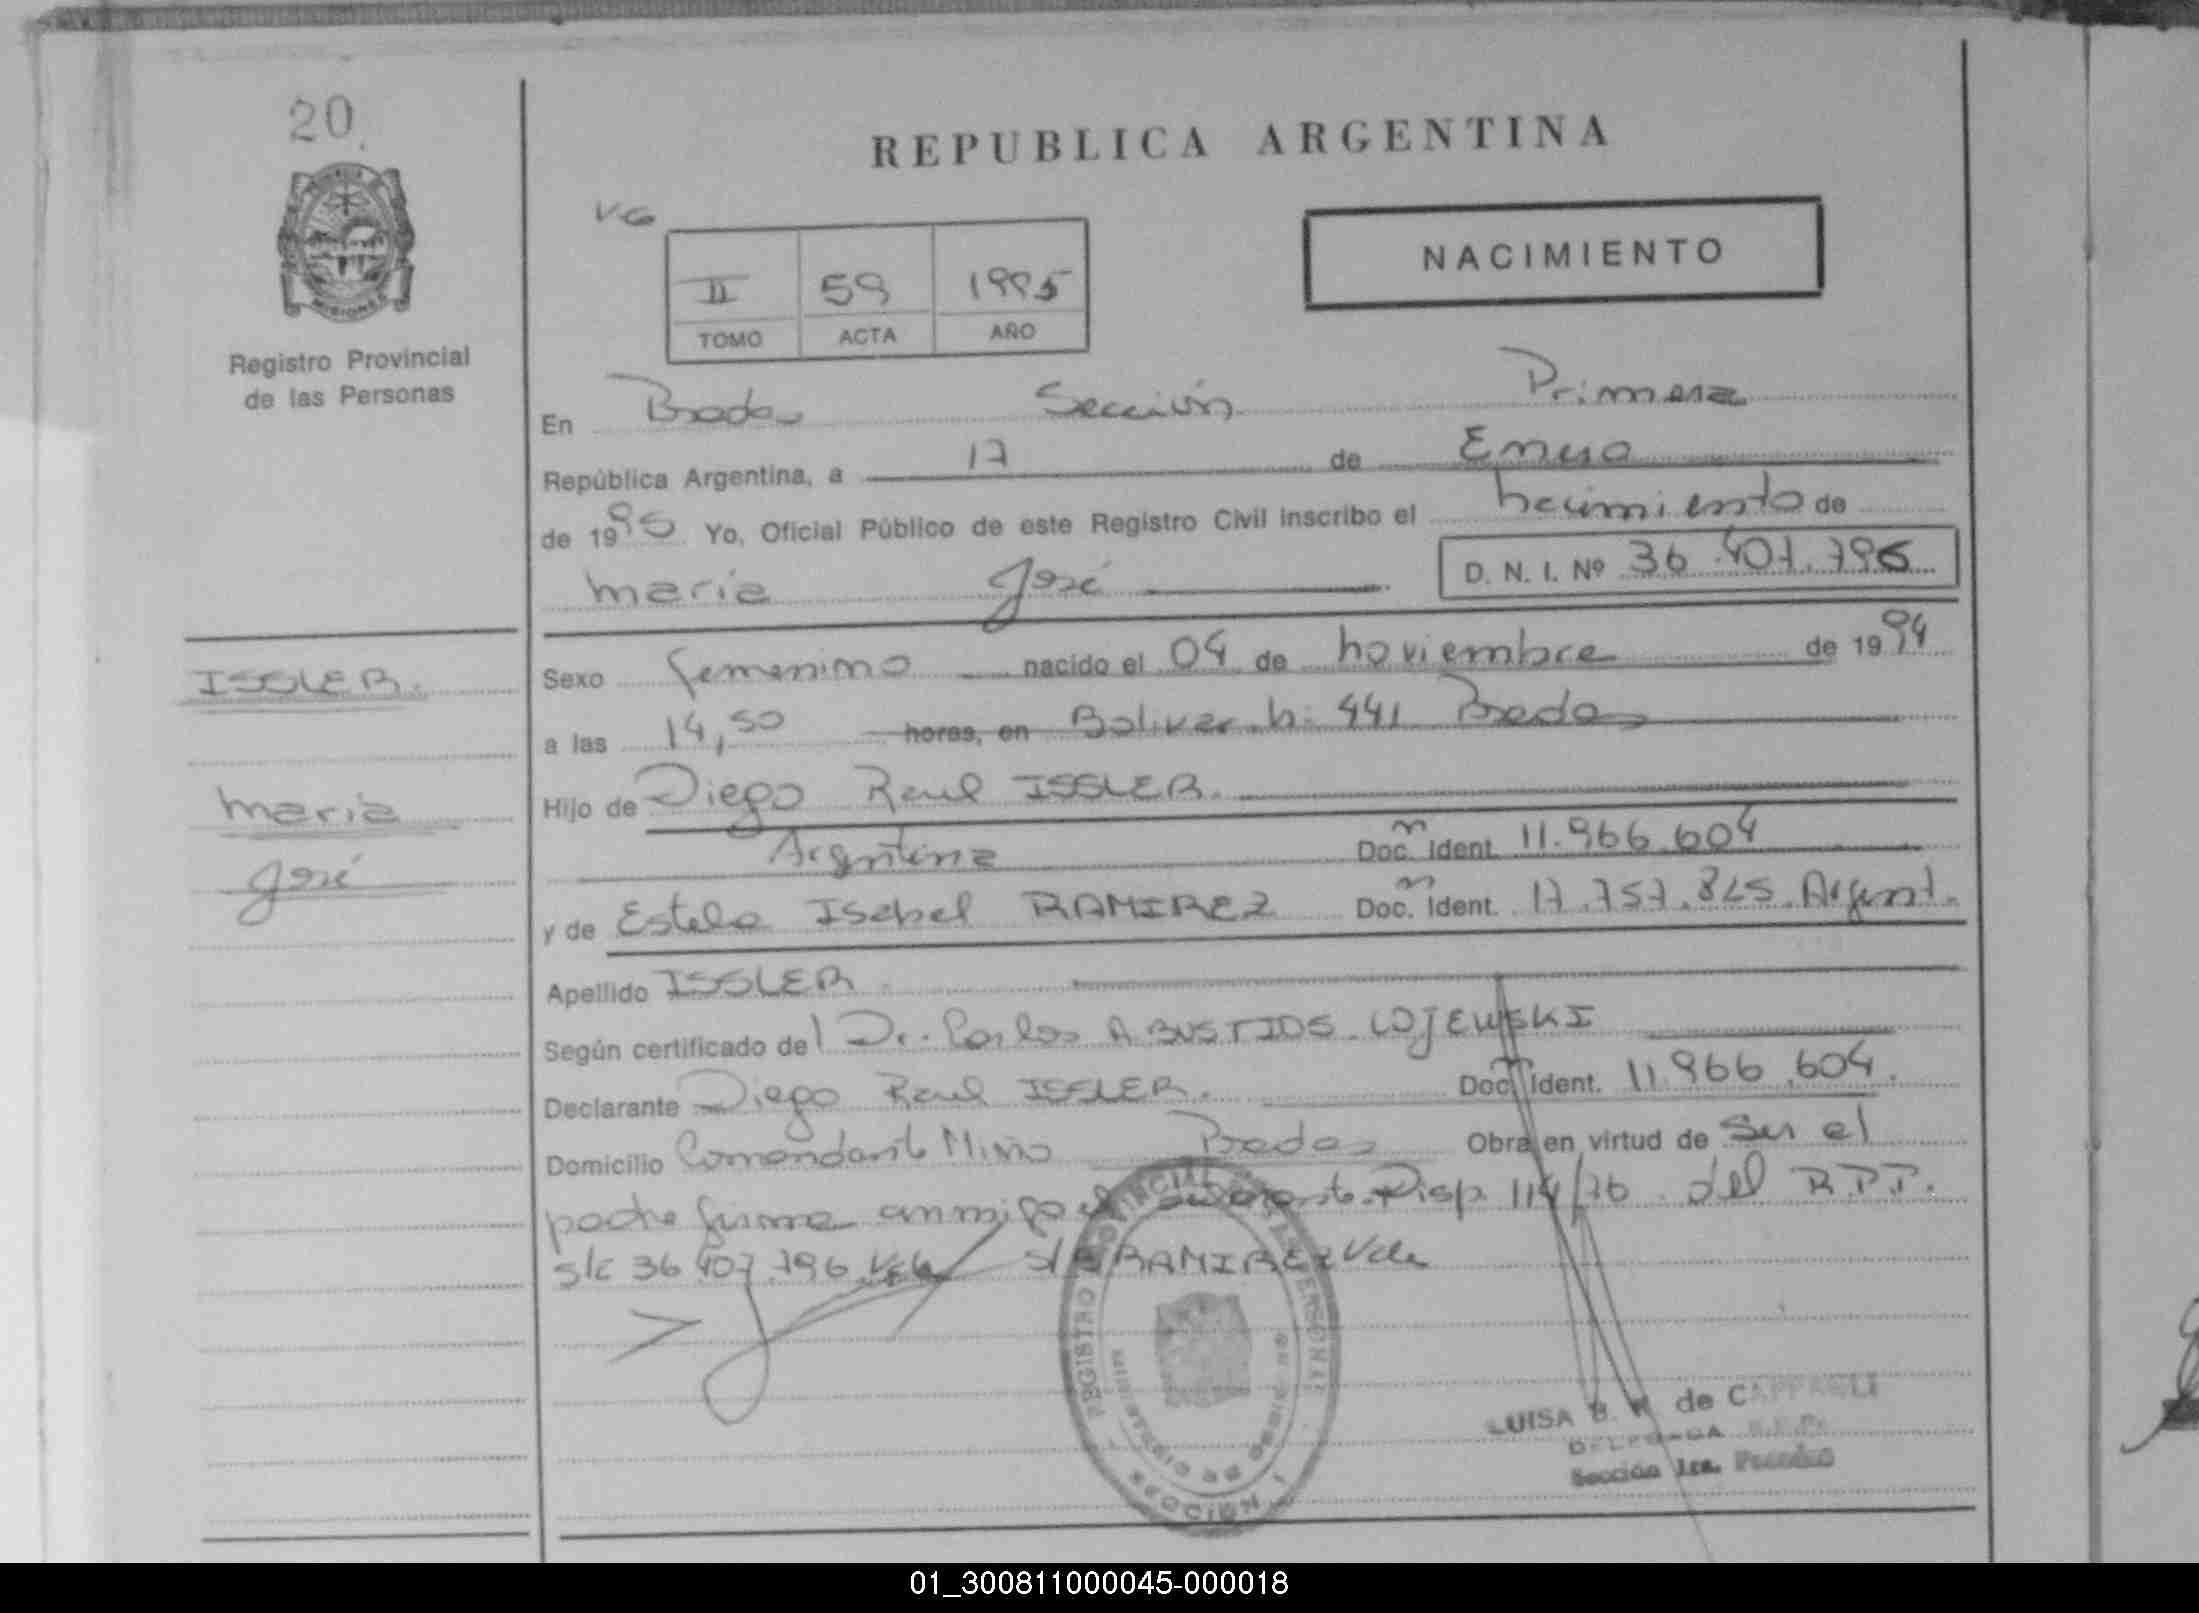 20
REPUBLICA ARGENTINA
VG
NACIMIENTO
II 59 1995
TOMO ACTA AÑO
Registro Provincial
de las Personas
En Psdas Sección Primera
República Argentina, a 17 de Enero
de 1995 Yo, Oficial Público de este Registro Civil inscribo el nacimiento de
maria José D. N. I. Nº 36.407.796
ISSLER.
maria
José
Sexo femenino nacido el 04 de noviembre de 1994
a las 14,50 horas, en Bolivar n: 441 Psdas
Hijo de Diego Raul ISSLER.
Argentina Doc. Ident. 11.966.604
y de Estela Isabel RAMIREZ Doc. Ident. 17.757.825. Argent.
Apellido ISSLER.
Según certificado del Dr. Carlos A BUSTIOS LOJEWSKI
Declarante Diego Raul ISSLER. Doc. Ident. 11.966.604.
Domicilio Comandante Miño Psdas Obra en virtud de Ser el
padre firma conmigo el Disp. 114/76 del R.P.P.
s/c 36.407.796 Vale s/R RAMIREZ Vale
REGISTRO PROVINCIAL DE LAS PERSONAS
SECCION 1
LUISA B. de CAPPAGLI
DELEGADA R.P.P.
Sección 1ra. Posadas
01_300811000045-000018